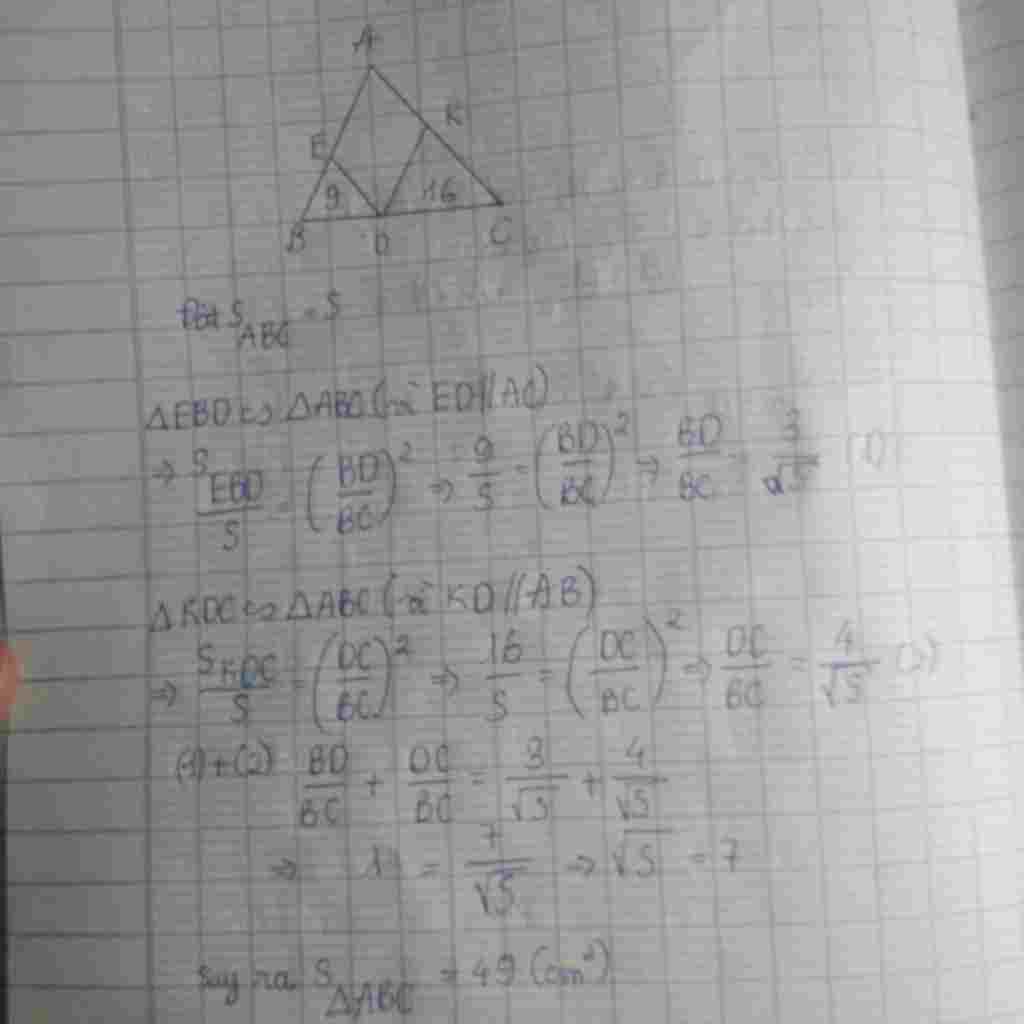 A
E K
9 16
B D C
Đặt S_ABC = S
ΔEBD ∽ ΔABC (vì ED // AC)
⇒ S_EBD/S = (BD/BC)² ⇒ 9/S = (BD/BC)² ⇒ BD/BC = 3/√S (1)
ΔKDC ∽ ΔABC (vì KD // AB)
⇒ S_KDC/S = (DC/BC)² ⇒ 16/S = (DC/BC)² ⇒ DC/BC = 4/√S (2)
(1)+(2) BD/BC + DC/BC = 3/√S + 4/√S
⇒ 1 = 7/√S ⇒ √S = 7
Suy ra S_ΔABC = 49 (cm²)